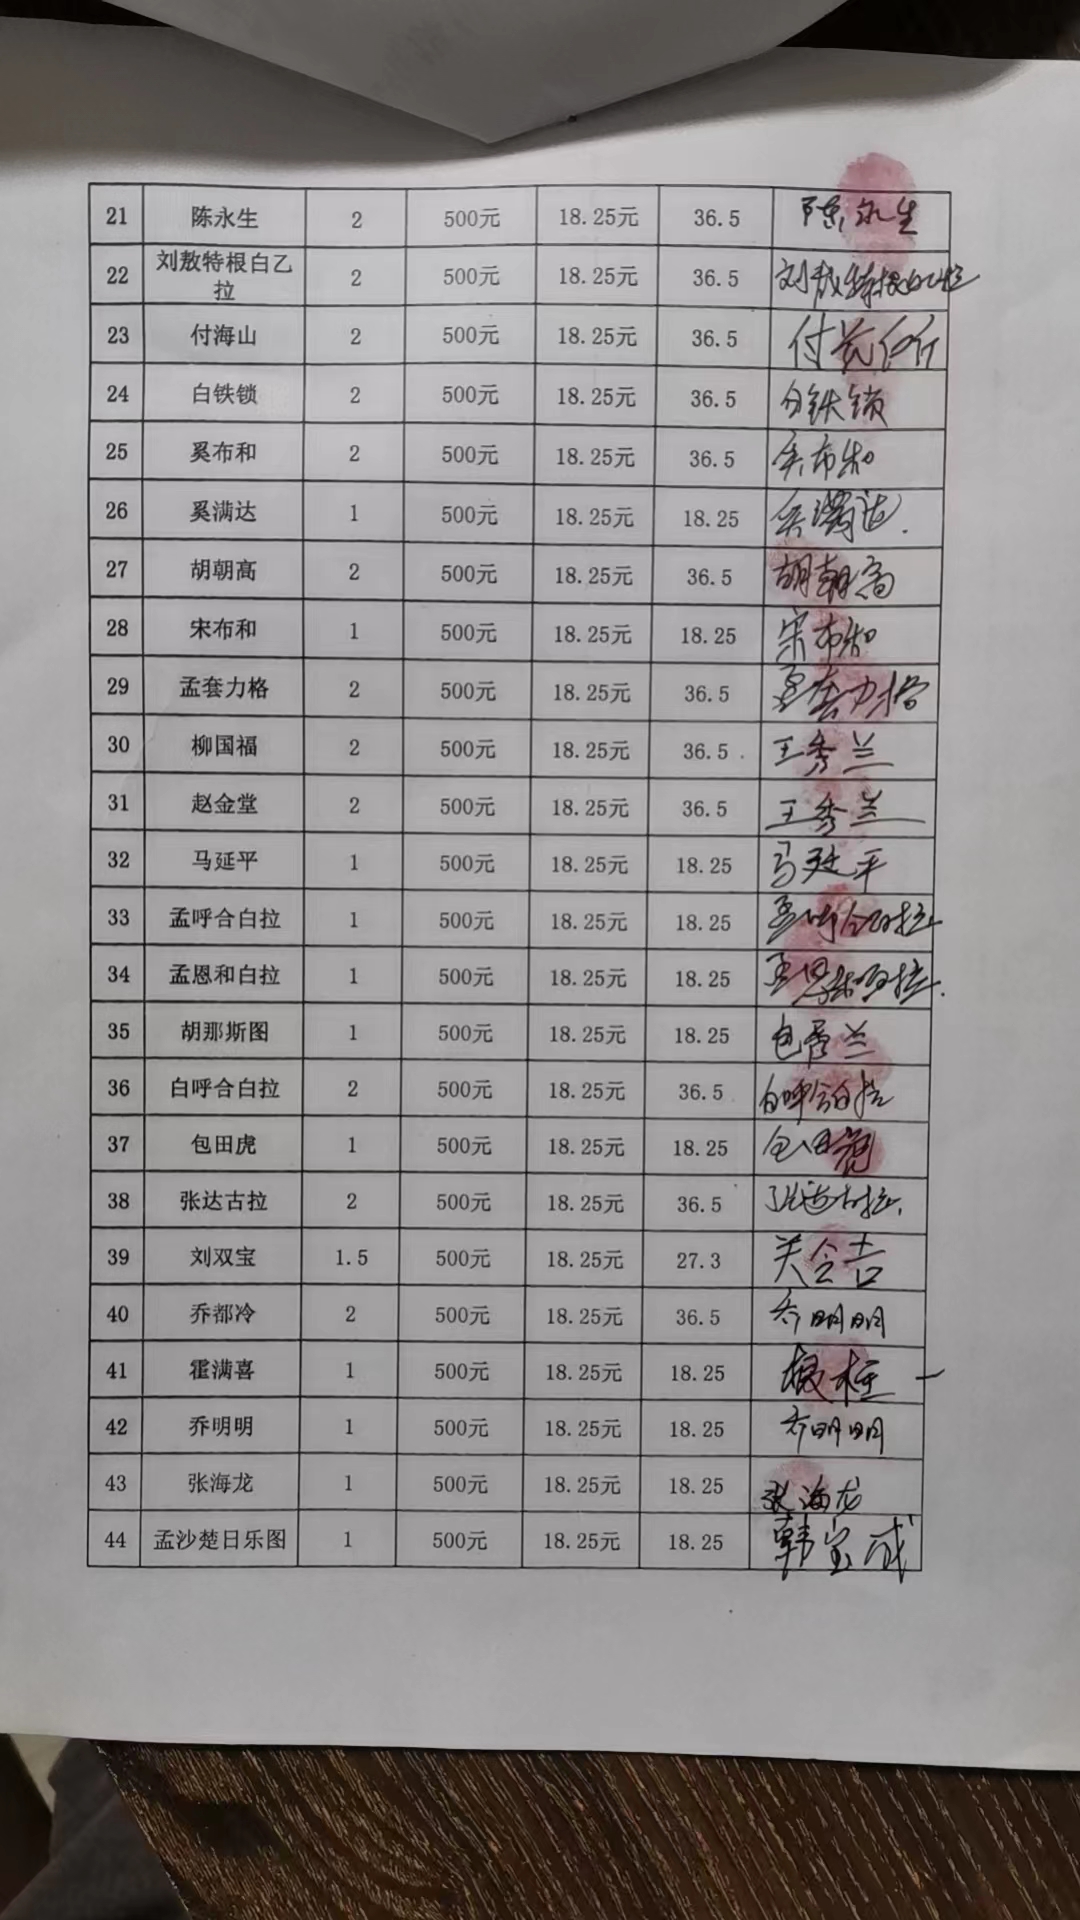 21 陈永生 2 500元 18.25元 36.5 陈永生
22 刘敖特根白乙拉 2 500元 18.25元 36.5 刘敖特根白乙拉
23 付海山 2 500元 18.25元 36.5 付
24 白铁锁 2 500元 18.25元 36.5 白铁锁
25 奚布和 2 500元 18.25元 36.5 奚布和
26 奚满达 1 500元 18.25元 18.25 奚满达
27 胡朝高 2 500元 18.25元 36.5 胡朝高
28 宋布和 1 500元 18.25元 18.25 宋布和
29 孟套力格 2 500元 18.25元 36.5 孟套力格
30 柳国福 2 500元 18.25元 36.5 王秀兰
31 赵金堂 2 500元 18.25元 36.5 王秀兰
32 马延平 1 500元 18.25元 18.25 马延平
33 孟呼合白拉 1 500元 18.25元 18.25 孟呼合白拉
34 孟恩和白拉 1 500元 18.25元 18.25 孟恩和白拉
35 胡那斯图 1 500元 18.25元 18.25 包香兰
36 白呼合白拉 2 500元 18.25元 36.5 白呼合白拉
37 包田虎 1 500元 18.25元 18.25 包田虎
38 张达古拉 2 500元 18.25元 36.5 张达古拉
39 刘双宝 1.5 500元 18.25元 27.3 关金吉
40 乔都冷 2 500元 18.25元 36.5 乔明明
41 霍满喜 1 500元 18.25元 18.25 根柱
42 乔明明 1 500元 18.25元 18.25 乔明明
43 张海龙 1 500元 18.25元 18.25 张海龙
44 孟沙楚日乐图 1 500元 18.25元 18.25 韩宝成